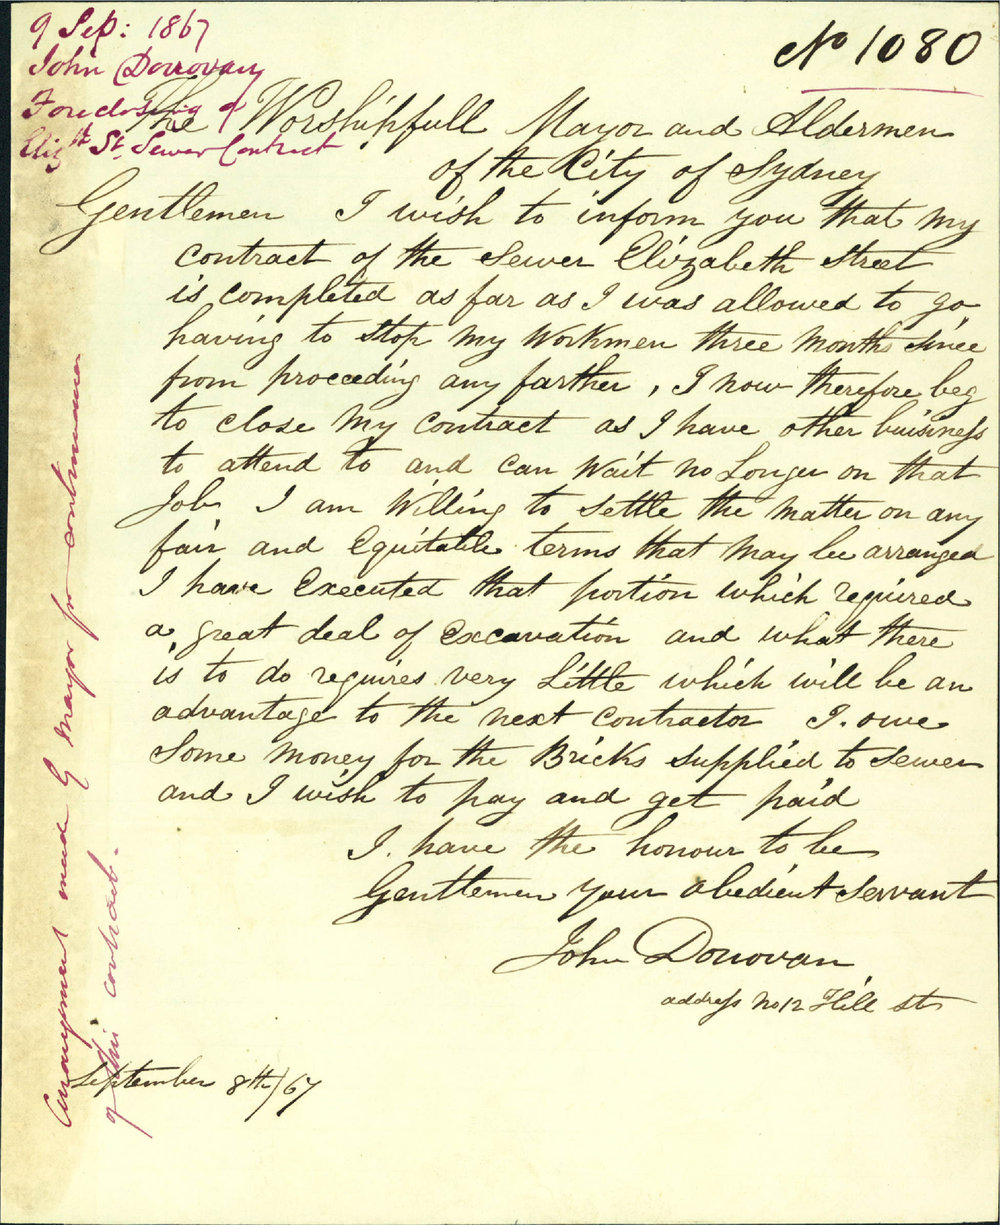 9 Sep: 1867
John Donovan
Foreclosing of
Elizth St. Sewer Contract
No 1080
The Worshipfull Mayor and Aldermen
of the City of Sydney
Gentlemen I wish to inform you that my
contract of the Sewer Elizabeth Street
is completed as far as I was allowed to go
having to stop my Workmen three months since
from proceeding any farther, I now therefore beg
to close my contract as I have other buisiness
to attend to and can wait no Longer on that
Job I am Willing to settle the matter on any
fair and Equitable terms that may be arranged
I have Executed that portion which required
a great deal of Excavation and what there
is to do requires very Little which will be an
advantage to the next contractor I. owe
Some money for the Bricks supplied to sewer
and I wish to pay and get paid
I. have the honour to be
Gentlemen your obedient servant
John Donovan
address No 12 Hill st
September 8th/67
Arrangement made by Mayor for continuance
of this contract.